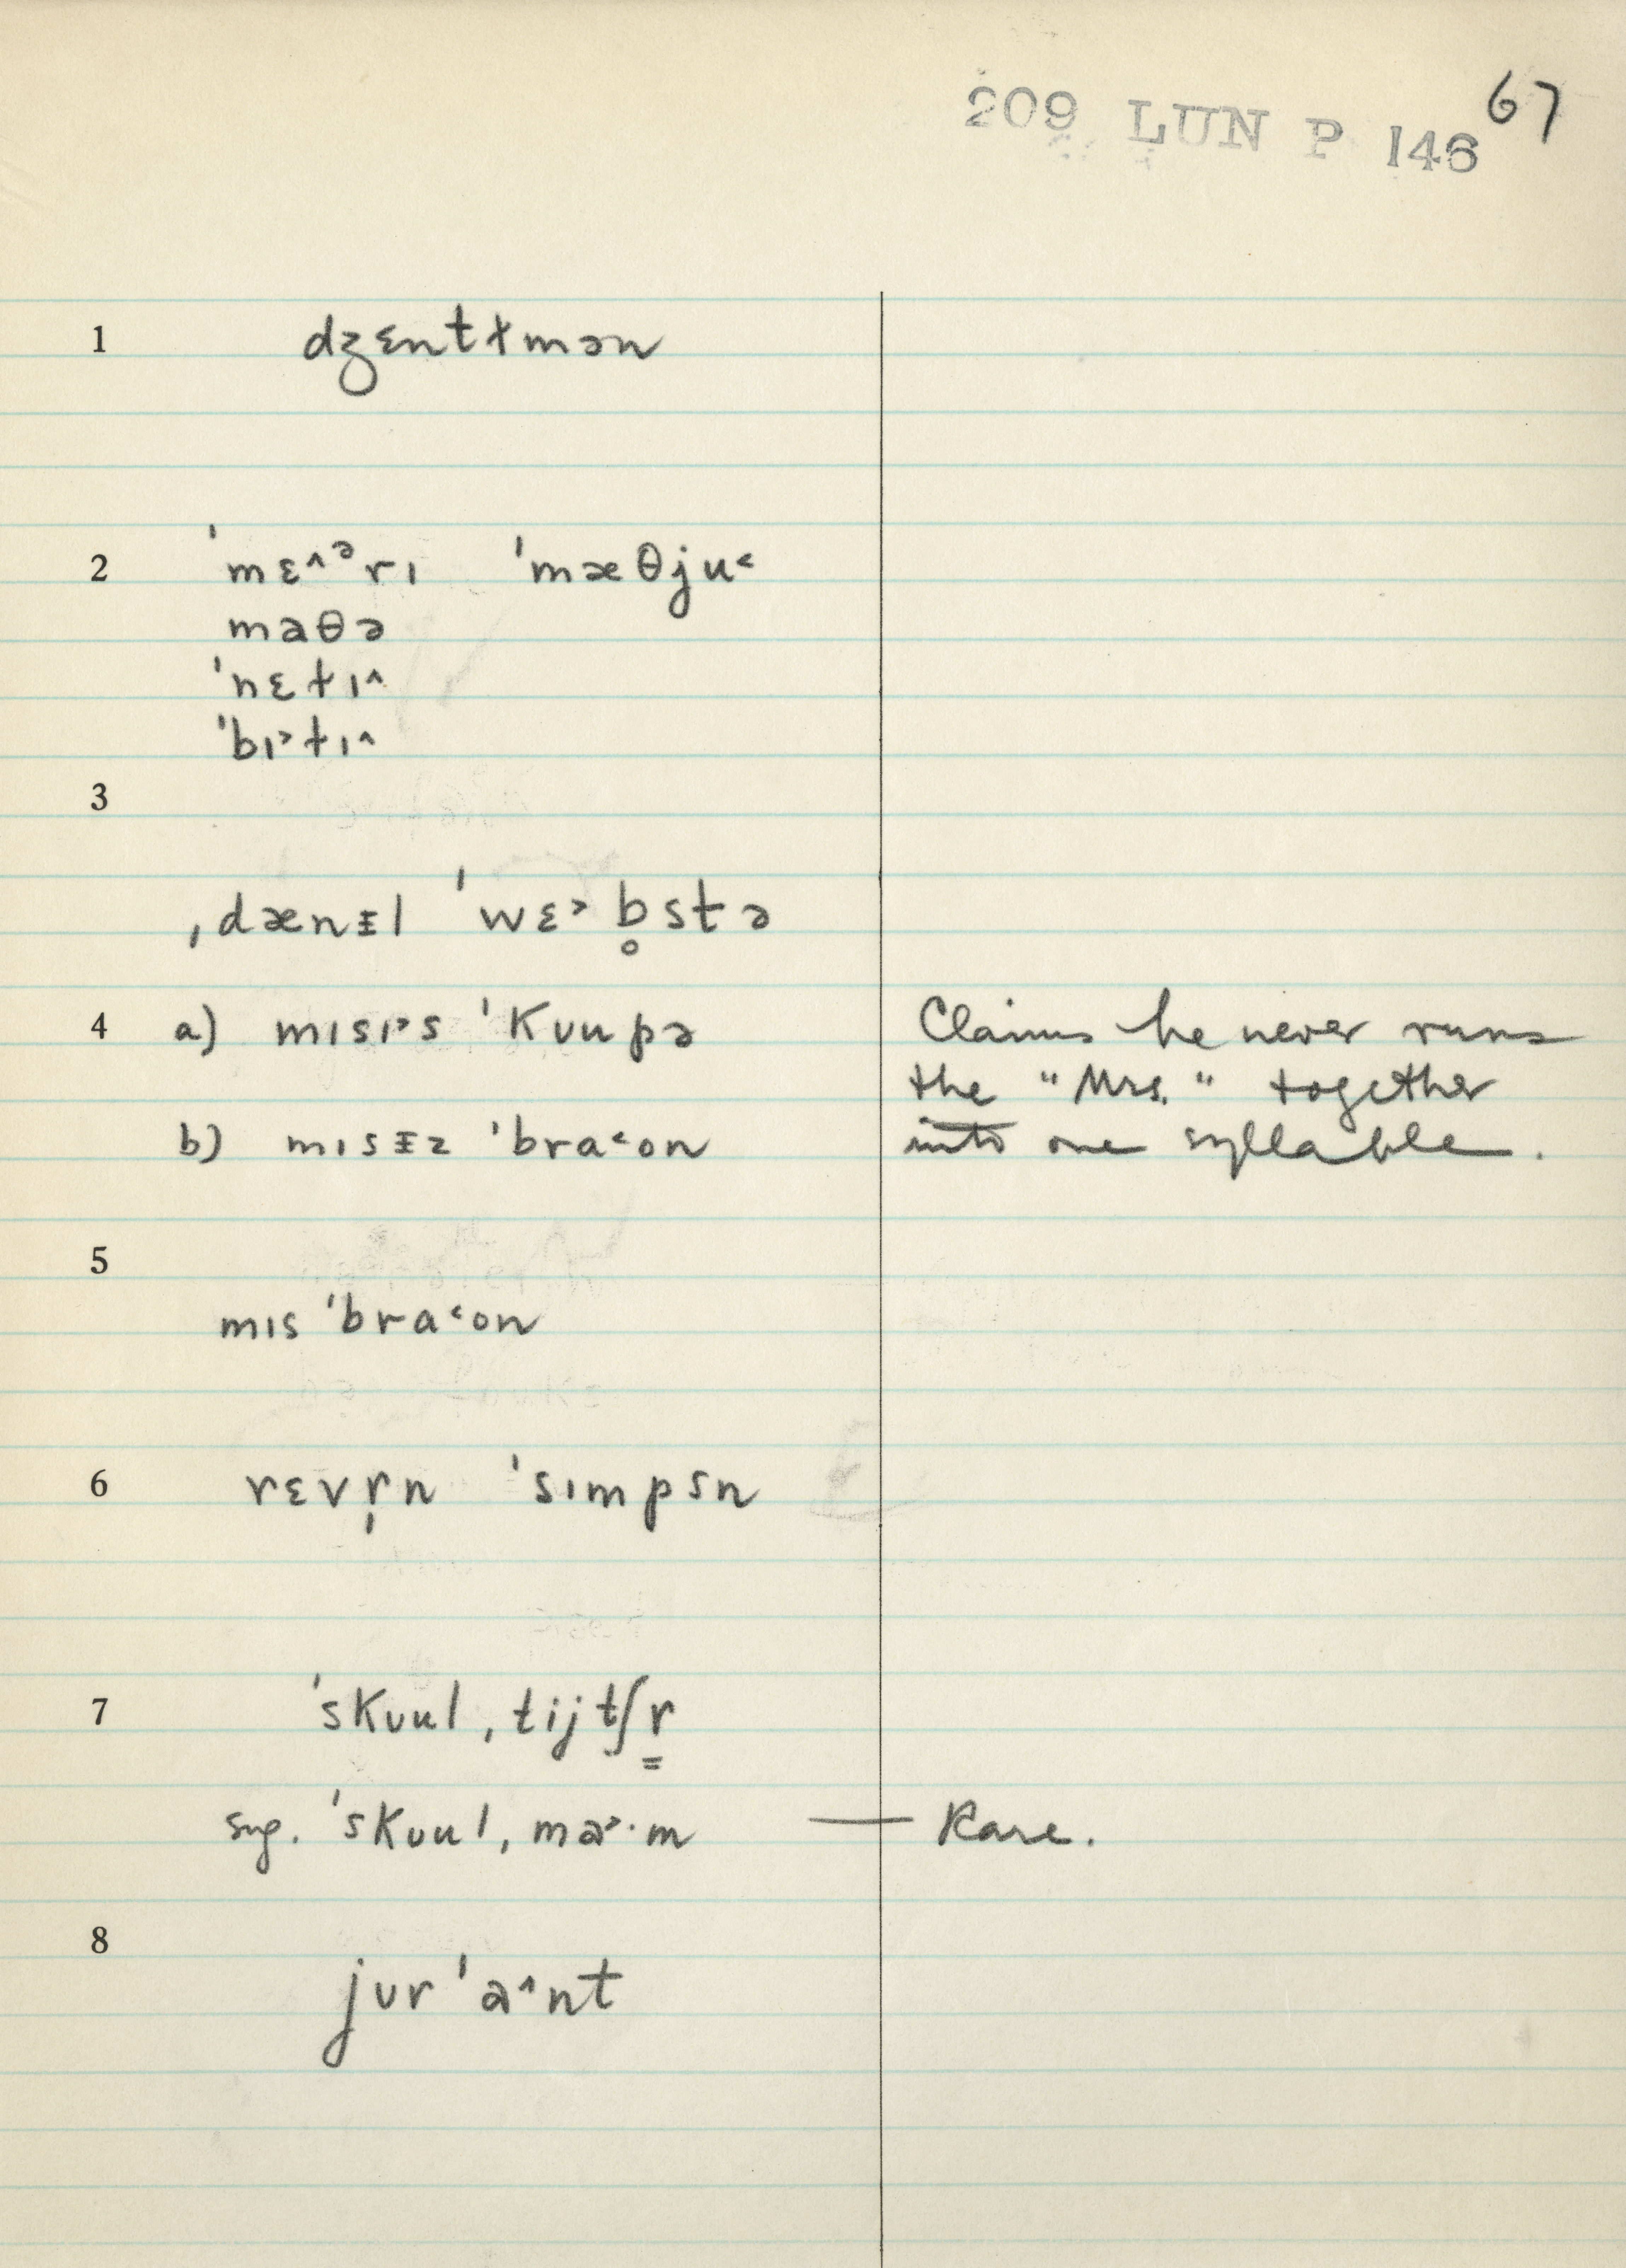 209 LUN P 146 67
1 dʒɛntɫmən
2 ˈmɛ^ᵊrɪ ˈmæθju˂
maθə
ˈnɛɫɪ^
ˈbɪ˃ɫɪ^
3
ˌdænɪ̵l ˈwɛ˃b̥stə
4 a) mɪsɪ˃s ˈKʊupə Claims he never runs
the "Mrs." together
b) mɪsɪ̵z ˈbra˂on into one syllable.
5
mɪs ˈbra˂on
6 rɛvr̩n ˈsɪmpsn
7 ˈsKʊulˌtijtʃr̳
sug. ˈsKʊulˌma˃·m — Rare.
8
jʊrˈa^nt